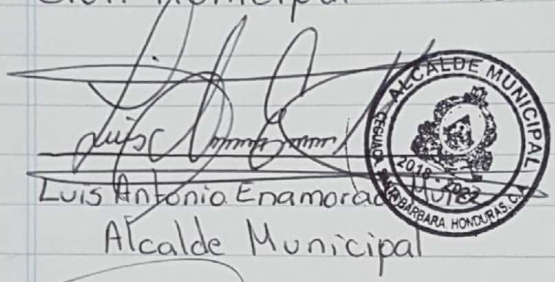 Municipal
Luis Antonio Enamorado
Alcalde Municipal
ALCALDE MUNICIPAL
2018 - 2022
SANTA BARBARA HONDURAS, C.A.